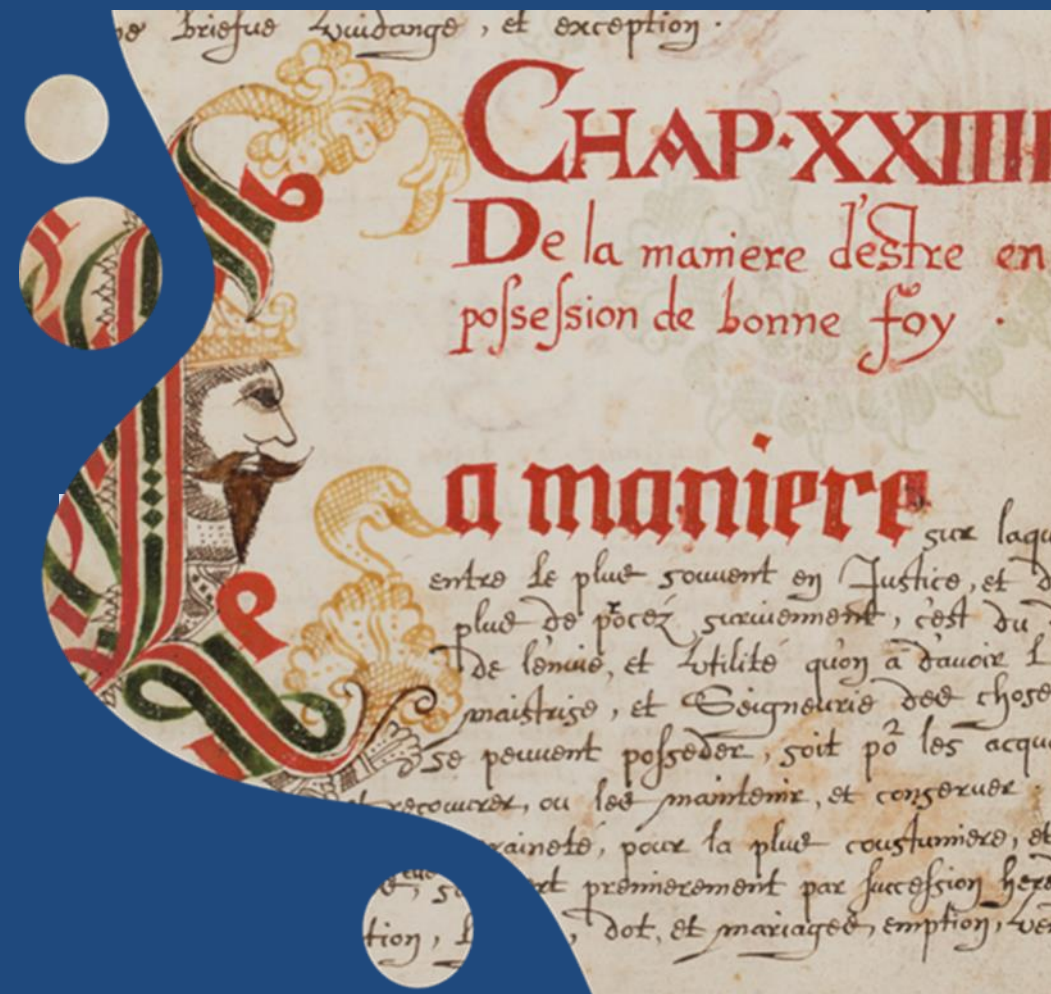 briefue vuidange, et exception.
CHAP·XXIIII
De la maniere d'estre en
possession de bonne foy.
La maniere sur laqu
entre le plus souuent en Justice, et d
plus de p̄cez suruiennent, c'est du
de l'enuie, et vtilité qu'on a d'auoir l
maistrise, et Seigneurie des chose
se peuuent posseder, soit po^r les acqu
recouurer, ou les maintenir, et conseruer.
raineté, pour la plus coustumiere, et
rt premierement par succession here
tion, dot, et mariages, emption, ve